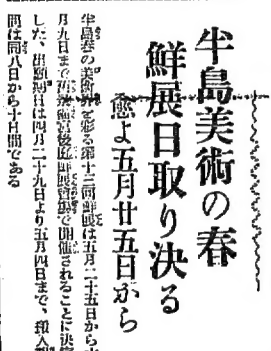 半島美術の春
鮮展日取り決る
愈よ五月廿五日から
半島春の美術界を彩る第十三回鮮展は五月二十五日から六
月九日まで
鮮展館で開催されることに決定
した、出願期日は四月二十九日より五月四日まで、搬入期
間は同八日から十日間である